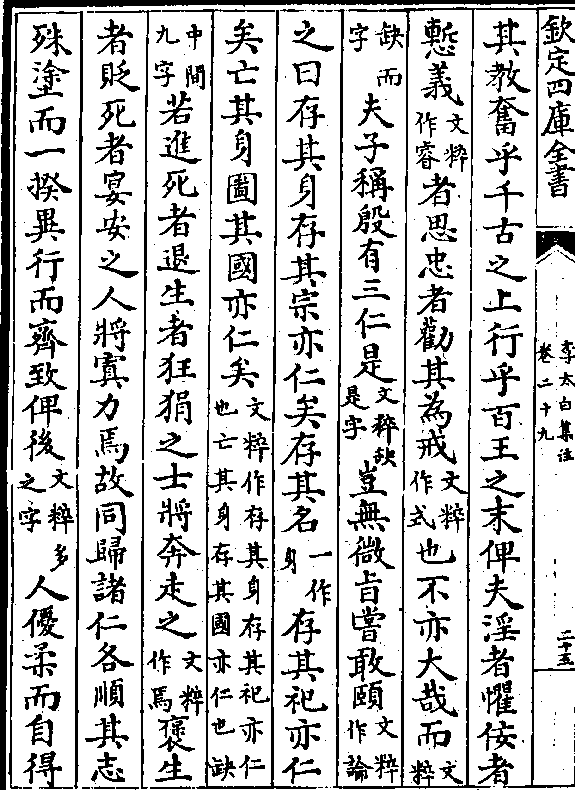 欽定四庫全書
李太白集注
卷二十九
二十五
其教奮乎千古之上行乎百王之末俾夫淫者懼佞者
慙義文粹作睿者思忠者勸其為戒文粹作式也不亦大哉而文粹
缺而字夫子稱殷有三仁是文粹缺是字豈無微旨嘗敢頤文粹作論
之曰存其身存其宗亦仁矣存其名一作身存其祀亦仁
矣亡其身圖其國亦仁矣文粹作存其身存其祀亦仁也亡其身存其國亦仁也缺
中間九字若進死者退生者狂狷之士將奔走之文粹作焉褒生
者貶死者宴安之人將寘力焉故同歸諸仁各順其志
殊塗而一揆異行而齊致俾後文粹多之字人優柔而自得